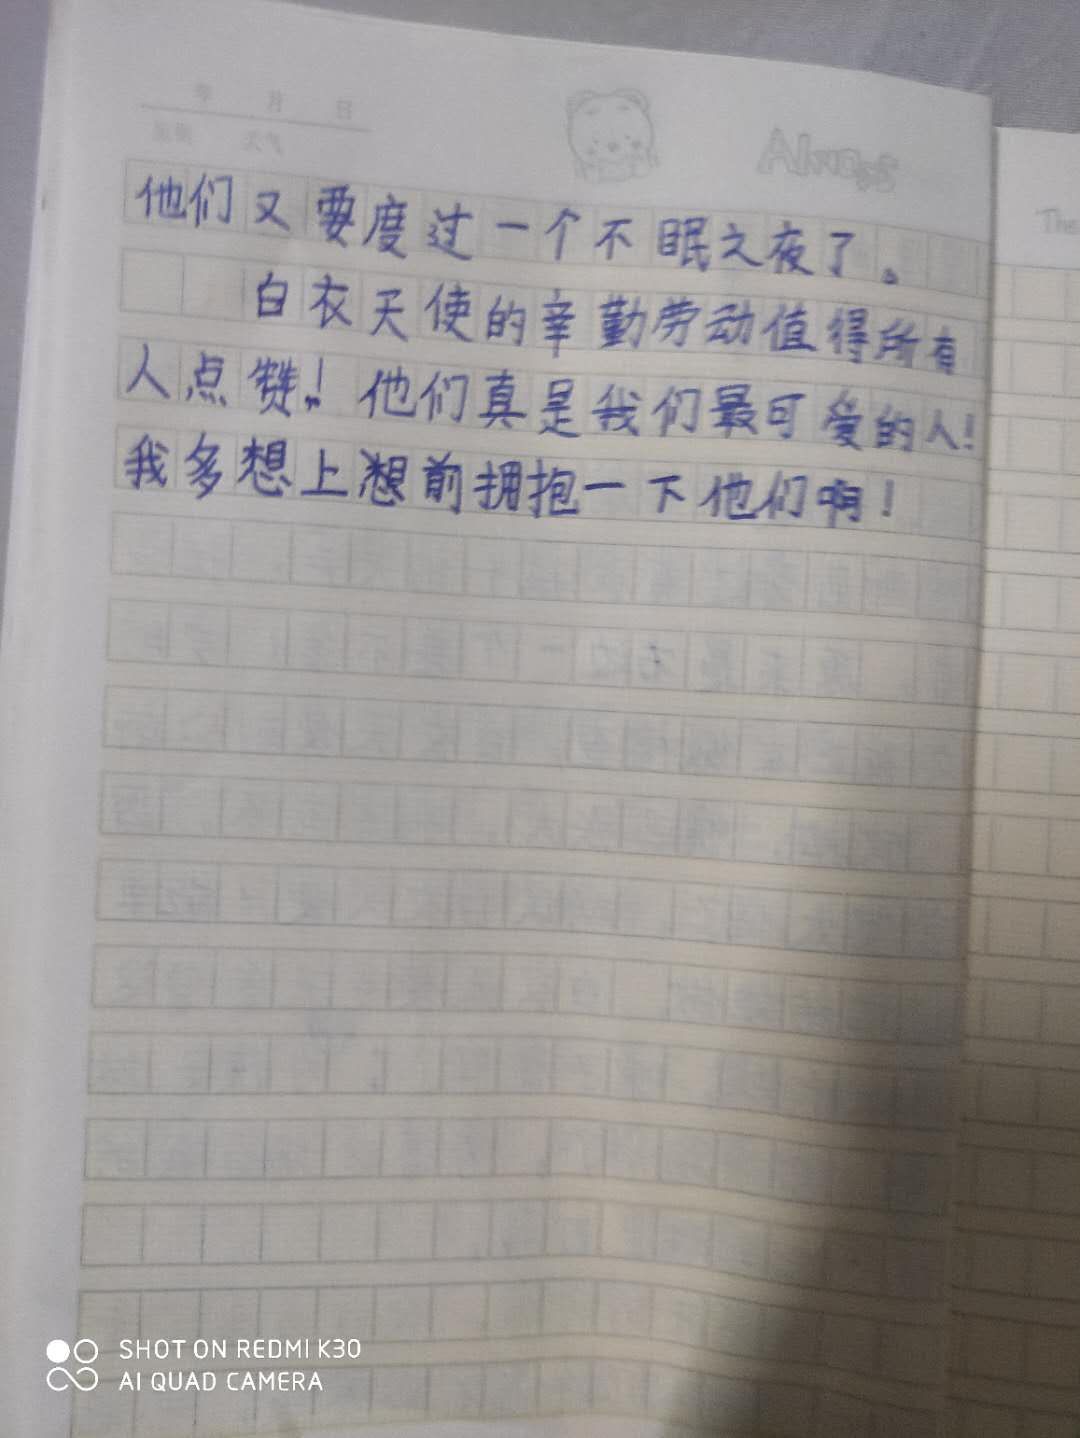 Always
The
他们又要度过一个不眠之夜了。
白衣天使的辛勤劳动值得所有
人点赞！他们真是我们最可爱的人！
我多想上想前拥抱一下他们啊！
SHOT ON REDMI K30
AI QUAD CAMERA